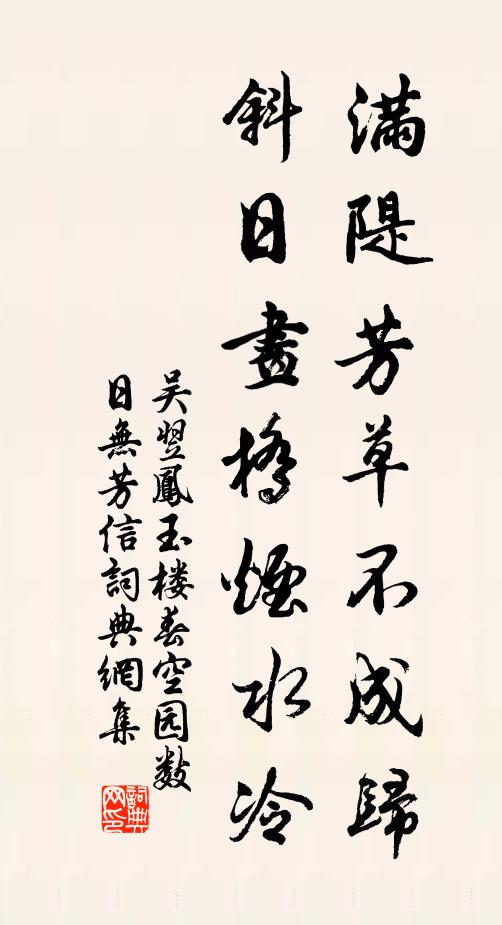 滿隄芳草不成歸
斜日畫橋煙水冷
吴翌鳳玉楼春空园数
日無芳信詞典網集
詞典网印